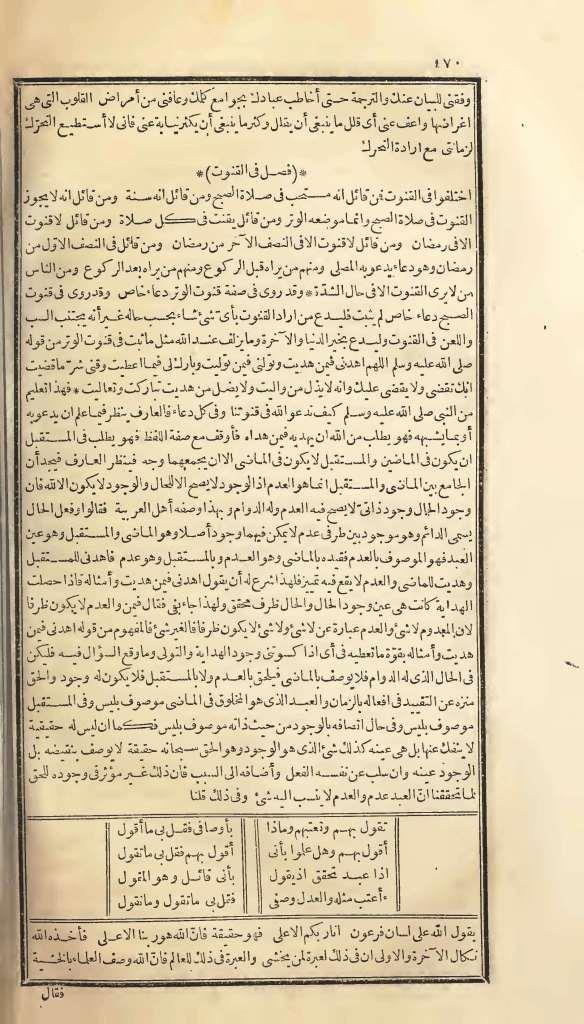 ٤٧٠
وفقني للبيان عنك والترجمة حتى أخاطب عبادك بجوامع كلمك وعافني من أمراض القلوب التي هي
اغراضها واعف عني أي قلل ما ينبغي أن يقال وكثر ما ينبغي أن يكثر نيابة عني فاني لا أستطيع التحرك
لزمانتي مع ارادة التحرك
*(فصل في القنوت)*
اختلفوا في القنوت فمن قائل انه مستحب في صلاة الصبح ومن قائل انه سنة ومن قائل انه لا يجوز
القنوت في صلاة الصبح وانما موضعه الوتر ومن قائل يقنت في كل صلاة ومن قائل لا قنوت
الا في رمضان ومن قائل لا قنوت الا في النصف الآخر من رمضان ومن قائل في النصف الاول من
رمضان وهو دعاء يدعو به المصلي ومنهم من يراه قبل الركوع ومنهم من يراه بعد الركوع ومن الناس
من لا يرى القنوت الا في حال الشدّة * وقد روى في صفة قنوت الوتر دعاء خاص وقد روى في قنوت
الصبح دعاء خاص لم يثبت فليدع من أراد القنوت بأي شئ شاء بحسب حاله غير أنه يجتنب السب
واللعن في القنوت وليدع بخير الدنيا والآخرة وما يزلف عند الله مثل ما ثبت في قنوت الوتر من قوله
صلى الله عليه وسلم اللهم اهدني فيمن هديت وتولني فيمن توليت وبارك لي فيما أعطيت وقني شر ما قضيت
انك تقضى ولا يقضى عليك وانه لا يذل من واليت ولا يضل من هديت تباركت وتعاليت * فهذا تعليم
من النبي صلى الله عليه وسلم كيف ندعو الله في قنوتنا وفي كل دعاء فالعارف ينظر فيما علم ان يدعو به
أو بما يشبهه فهو يطلب من الله ان يهديه فيمن هداه فأوقف مع صفة اللفظ فهو يطلب في المستقبل
ان يكون في الماضين والمستقبل لا يكون في الماضي الا ان يجمعهما وجه فينظر العارف فيجد أن
الجامع بين الماضي والمستقبل انما هو العدم اذ الوجود لا يصح الا للحال والوجود لا يكون الا لله فان
وجود الحال وجود ذاتيّ لا يصح فيه العدم وله الدوام وبهذا وصفه أهل العربية فقالوا وفعل الحال
يسمى الدائم وهو موجود بين طرفي عدم لا يمكن فيهما وجود أصلا وهو الماضي والمستقبل وهو عين
العبد فهو الموصوف بالعدم فقيده بالماضي وهو العدم وبالمستقبل وهو عدم فاهدني للمستقبل
وهديت للماضي والعدم لا يقع فيه تمييز فلهذا شرع له أن يقول اهدني فيمن هديت وأمثاله فاذا حصلت
الهداية كانت هي عين وجود الحال والحال ظرف محقق ولهذا جاء بفي فقال فيمن والعدم لا يكون ظرفا
لان المعدوم لا شئ والعدم عبارة عن لا شئ ولا شئ لا يكون ظرفا لغير شئ فالمفهوم من قوله اهدني فيمن
هديت وأمثاله بقوة ما تعطيه في أي اذا كسوتني وجود الهداية والتولي وما وقع السؤال فيه فليكن
في الحال الذي له الدوام فلا يوصف بالماضي فيلحق بالعدم ولا بالمستقبل فلا يكون له وجود والحق
منزه عن التقييد في افعاله بالزمان والعبد الذي هو المخلوق في الماضي موصوف بليس وفي المستقبل
موصوف بليس وفي حال اتصافه بالوجود من حيث ذاته موصوف بليس فكما ان ليس له حقيقية
لا ينفك عنها بل هي عينه كذلك شئ الذي هو الوجود وهو الحق سبحانه حقيقة لا يوصف بنقيضه بل
الوجود عينه وان سلب عن نفسه الفعل وأضافه الى السبب فان ذلك غير مؤثر في وجوده للحق
لما تحققنا انّ العبد عدم والعدم لا ينسب اليه شئ وفي ذلك قلنا
تقول بهم وتعتبهم وماذا بأوصافي فقل بي ما أقول
أقول بهم وهل علوا بأني أقول بهم فقل بي ما تقول
اذا عبد تحقق اذ يقول بأني قائل وهو المقول
ءأعتب مثله والعدل وصفي فقل بي ما تقول وما نقول
يقول الله على لسان فرعون انا ربكم الاعلى فهو حقيقة فانّ الله هو ربنا الاعلى فأخذه الله
نكال الآخرة والاولى ان في ذلك لعبرة لمن يخشى والعبرة في ذلك للعالم فانّ الله وصف العلماء بالخشية
فقال